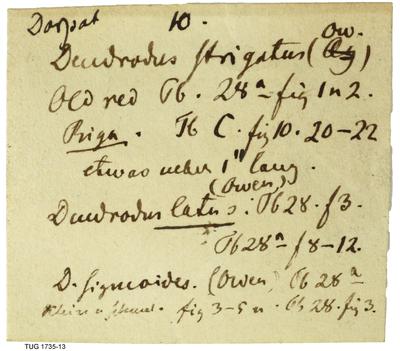 Dorpat 10.
Ow.
Dendrodus strigatus (Ag)
Old red Tb. 28a fig 1 u 2.
Riga. Tb C. fig 10. 20-22
etwas ueber 1" lang.
(Owen)
Dendrodus latus: Tb 28. f 3.
Tb 28a f 8-12.
D. sigmoides. (Owen) Tb 28a
fig 3-5 u. Tb 28. fig 3.
TUG 1735-13